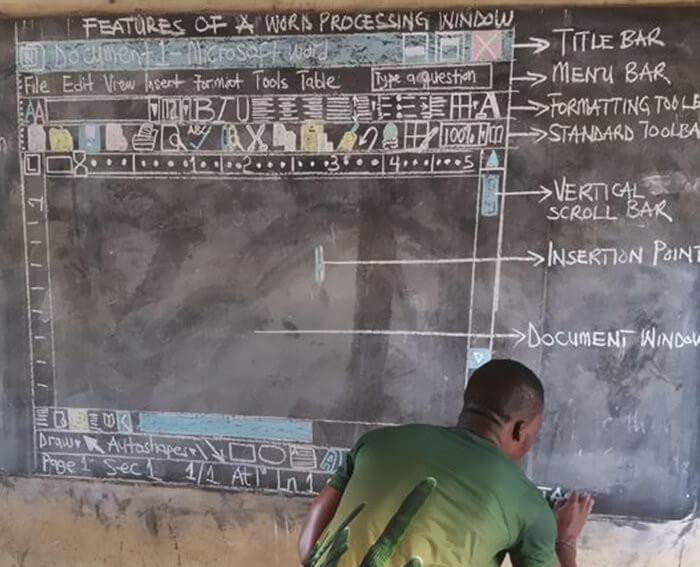 FEATURES OF A WORD PROCESSING WINDOW
Document 1 - Microsoft word
TITLE BAR
File Edit View Insert Format Tools Table
Type a question
MENU BAR
AA
12
B I U
A
FORMATTING TOOLB
ABC
100%
STANDARD TOOLBA
L
1 2 3 4 5
1
VERTICAL
SCROLL BAR
INSERTION POINT
DOCUMENT WINDOW
Draw Autoshapes
A
Page 1 Sec 1 1/1 At 1" Ln 1
STA